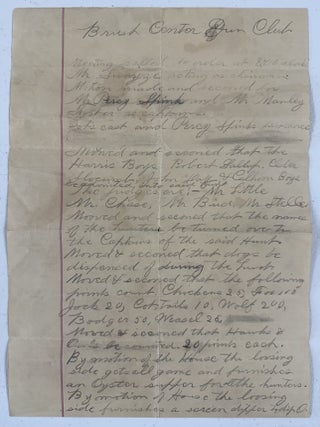 Brush Center Gun Club
Meeting called to order at 8:00 clock
Mr. acting as chairman
Motion made and seconed for
Mr Percy Spink and Mr. Manley
as captains
cast and Percy Spinks
Mooved and seconed that the
Harris Boys Robert
and Calhoon Boys
into said hunt
The judges are:- Mr Little
Mr. Chase, Mr. Bind Mr. Stelle
Mooved and seconed that the names
of the hunters be turned over to
the Captins of the said Hunt
Moved & seconed that dogs be
dispensed of during the hunt.
Moved & seconed that the following
points count Chickens 25, Fox 100
Jack 20, CotTails 10, Wolf 200,
Badger 50, Weasel 25,
Moved & seconed that Hawks &
Owls be counted 20 points each.
By motion of the House the loosing
side gets all game and furnishes
an Oyster supper for the hunters.
By motion of House the loosing
side furnishes a screen dipper